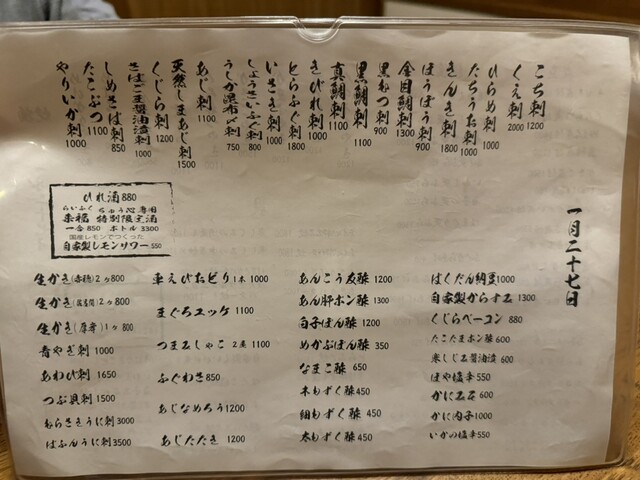 こち刺 1200
くえ刺 2000
ひらめ刺 1000
たちうお刺 1000
きんき刺 1800
ほうぼう刺 900
金目鯛刺 1300
黒むつ刺 900
黒鯛刺 1100
真鯛刺 1100
きびれ刺 1000
とらふぐ刺 1800
いさき刺 1000
しょうさいふぐ刺 800
うしか昆布〆刺 750
天然しまあじ刺 1500
あじ刺 1100
くじら刺 1200
さばごま醤油漬刺 1000
しめさば刺 850
たこぶつ 1100
やりいか刺 1000
一月二十七日
ひれ酒 880
らいふく ちゅう心専用
来福 特別限定酒
一合 850 ボトル 3300
国産レモンでつくった
自家製レモンサワー 550
生かき(赤穂)2ヶ800
生かき 2ヶ800
生かき(厚岸)1ヶ800
青やぎ刺 1000
あわび刺 1650
つぶ貝刺 1000
むらさきうに刺 3000
ばふんうに刺 3500
車えびおどり 1本 1000
まぐろユッケ 1100
つまみしゃこ 2尾 1100
ふぐわさ 850
あじなめろう 1200
あじたたき 1200
あんこう友酢 1200
あん肝ポン酢 1300
白子ぽん酢 1200
めかぶぽん酢 350
なまこ酢 650
木もずく酢 450
細もずく酢 450
太もずく酢 450
ばくだん納豆 1000
自家製からすみ 1300
くじらベーコン 880
たこたまポン酢 600
米しじみ醤油漬 600
ほや塩辛 550
かにみそ 600
かに内子 1000
いかの塩辛 550